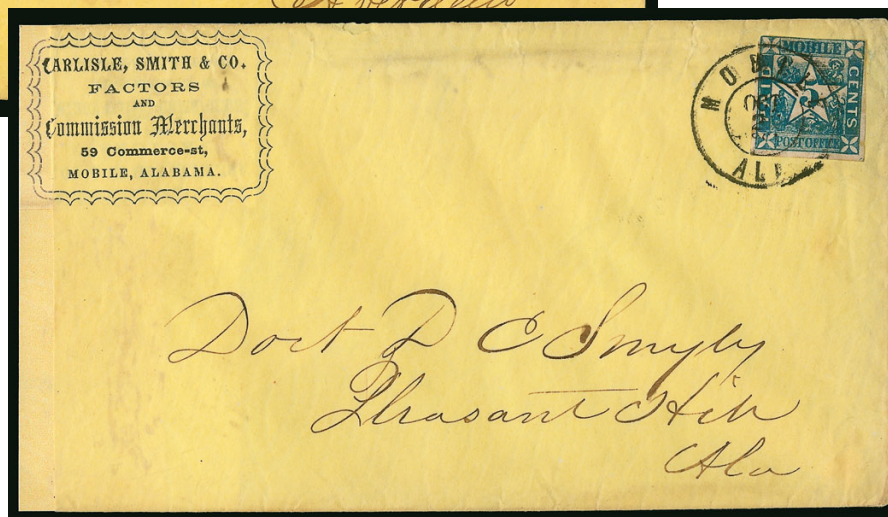 CARLISLE, SMITH & CO.
FACTORS
AND
Commission Merchants,
59 Commerce-st,
MOBILE, ALABAMA.
MOBILE
ALA
MOBILE
5
CENTS
POST OFFICE
Doct D C Smyly
Pleasant Hill
Ala